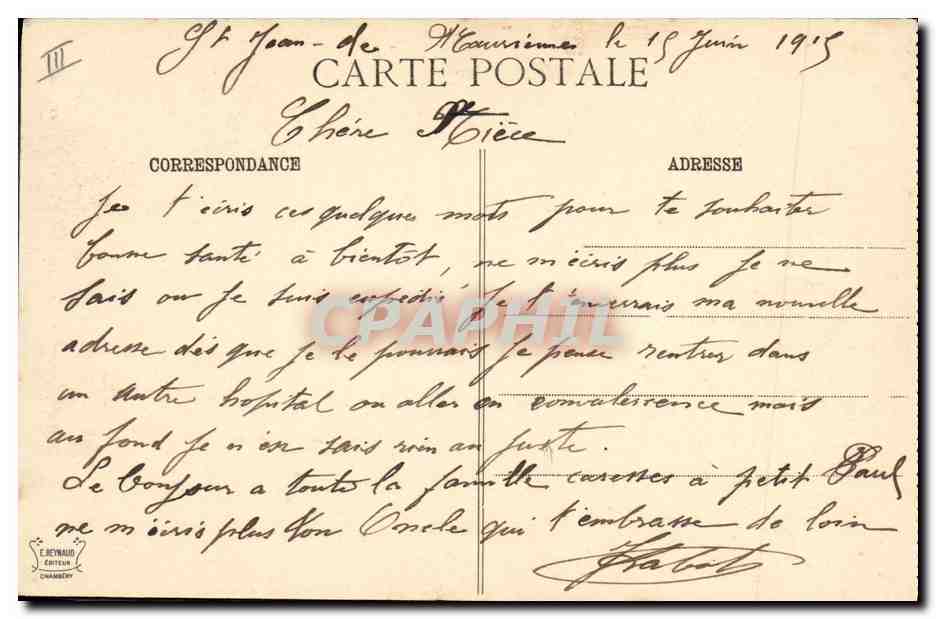 III
St Jean-de Mauriennes le 15 Juin 1915
CARTE POSTALE
Chére Nièce
CORRESPONDANCE
ADRESSE
Je t'écris ces quelques mots pour te souhaiter
bonne santé à bientôt, ne m'écris plus Je ne
sais ou Je suis expédié Je t'enverrais ma nouvelle
adresse dés que Je le pourrais Je pense rentrer dans
un autre hopital ou aller en convalessence mais
au fond Je n'en sais rien au Juste.
Le bonjour a toute la famille caresses à petit Paul
ne m'écris plus ton Oncle qui t'embrasse de loin
CPAPHIL
E. REYNAUD
ÉDITEUR
CHAMBÉRY